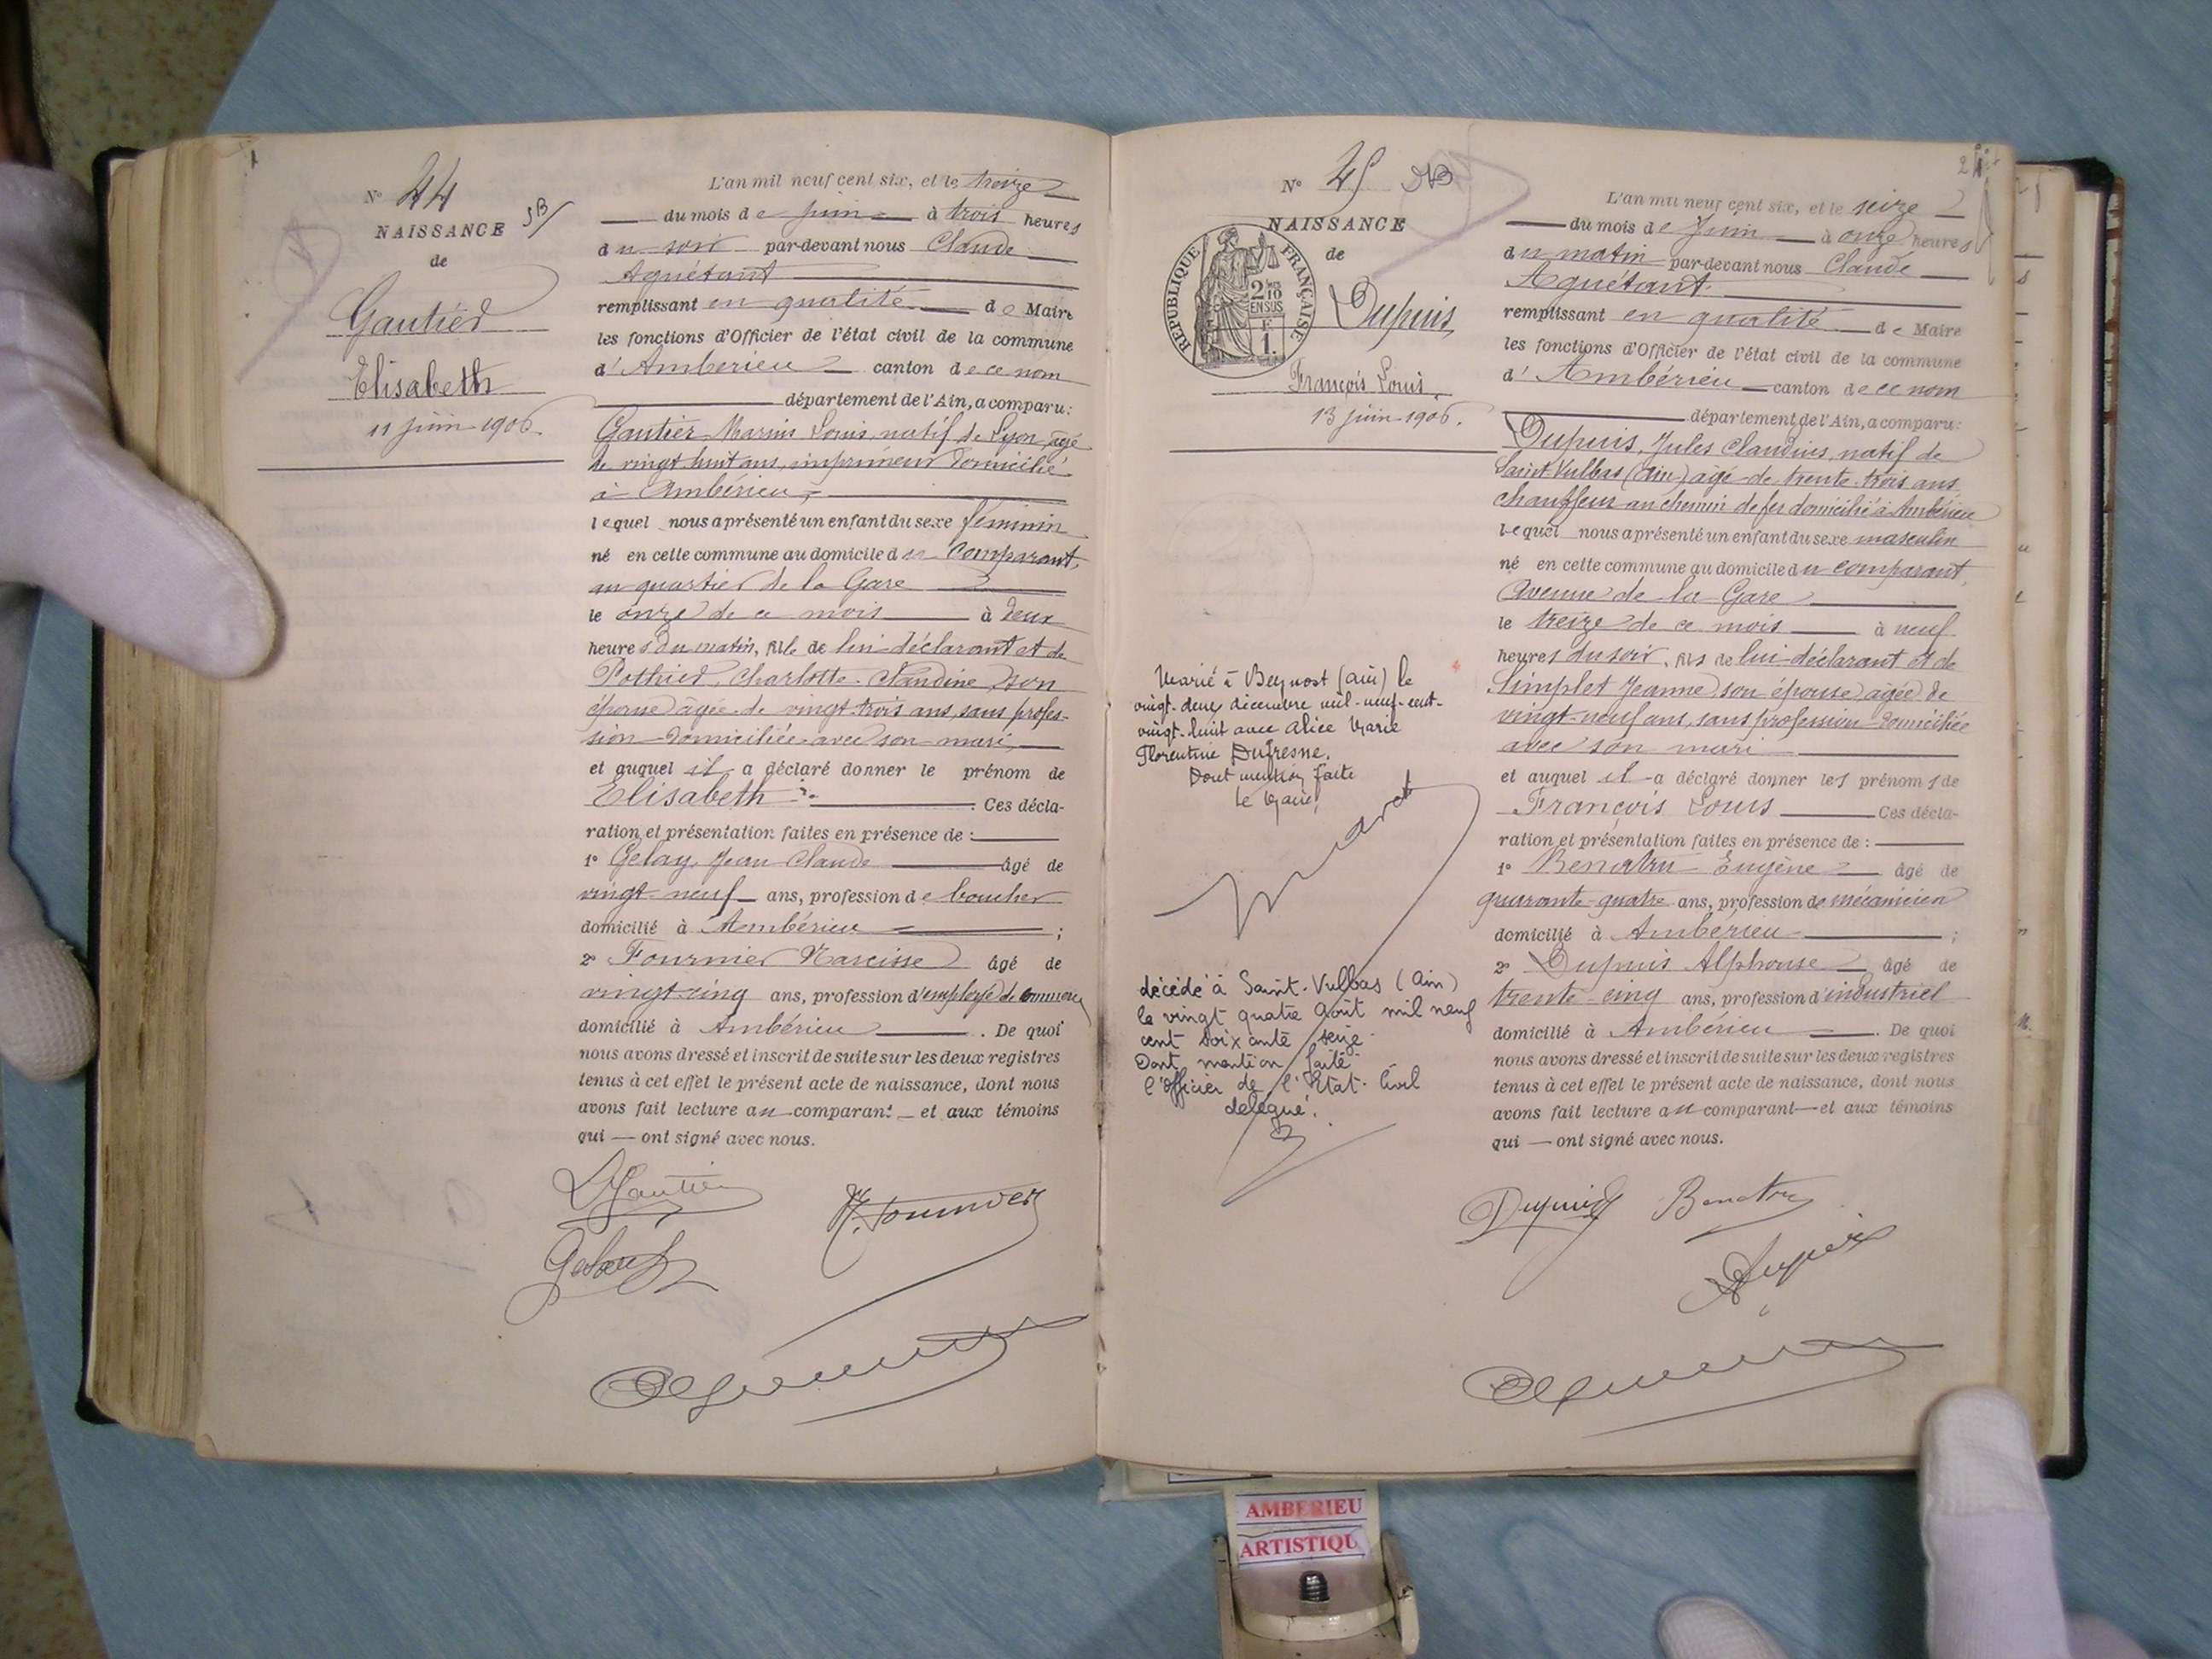 N° 44
NAISSANCE
de
Gautier
Elisabeth
11 juin 1906.
L'an mil neuf cent six, et le treize
du mois de juin à trois heures
du soir par-devant nous Claude
Aguétant
remplissant en qualité de Maire
les fonctions d'Officier de l'état civil de la commune
d'Amberieu canton de ce nom
département de l'Ain, a comparu:
Gautier Marius Louis, natif de Lyon, âgé
de vingt huit ans, imprimeur domicilié
à Ambérieu,
lequel nous a présenté un enfant du sexe féminin
né en cette commune au domicile du comparant,
au quartier de la Gare
le onze de ce mois à deux
heures du matin, fille de lui déclarant et de
Pothier, Charlotte Claudine, son
épouse âgée de vingt-trois ans, sans profes-
sion domiciliée avec son mari,
et auquel il a déclaré donner le prénom de
Elisabeth . Ces décla-
ration et présentation faites en présence de :
1° Gelay, Jean Claude âgé de
vingt-neuf ans, profession de boucher
domicilié à Ambérieu ;
2° Fournier Narcisse âgé de
vingt-cinq ans, profession d'employé de commerce
domicilié à Ambérieu . De quoi
nous avons dressé et inscrit de suite sur les deux registres
tenus à cet effet le présent acte de naissance, dont nous
avons fait lecture au comparant et aux témoins
qui — ont signé avec nous.
Gautier
N. Fournier
N° 45
NAISSANCE
de
RÉPUBLIQUE FRANÇAISE
2/10
EN SUS
1.
Dupuis,
François Louis.
13 juin 1906.
Marié à Beynost (ain) le
vingt-deux décembre mil-neuf-cent-
vingt-huit avec Alice Marie
Florentine Dufresne.
Dont mention faite
Le Maire,
décédé à Saint-Vulbas (Ain)
le vingt quatre Août mil neuf
cent soixante seize
Dont mention faite
l'Officier de l'Etat-Civil
délégué.
L'an mil neuf cent six, et le seize
du mois de Juin à onze heures
du matin par-devant nous Claude
Aguétant
remplissant en qualité de Maire
les fonctions d'Officier de l'état civil de la commune
d'Ambérieu canton de ce nom
département de l'Ain, a comparu:
Dupuis, Jules Claudius, natif de
Saint-Vulbas (Ain) âgé de trente-trois ans
chauffeur au chemin de fer domicilié à Ambérieu
lequel nous a présenté un enfant du sexe masculin
né en cette commune au domicile du comparant,
Avenue de la Gare
le treize de ce mois à neuf
heures du soir, fils de lui déclarant et de
Simplet Jeanne, son épouse, âgée de
vingt-neuf ans, sans profession domiciliée
avec son mari
et auquel il a déclaré donner les prénoms de
François Louis Ces décla-
ration et présentation faites en présence de :
1° Benatru Eugène âgé de
quarante-quatre ans, profession de mécanicien
domicilié à Ambérieu ;
2° Dupuis Alphonse âgé de
trente-cinq ans, profession d'industriel
domicilié à Ambérieu . De quoi
nous avons dressé et inscrit de suite sur les deux registres
tenus à cet effet le présent acte de naissance, dont nous
avons fait lecture au comparant — et aux témoins
qui — ont signé avec nous.
Dupuis Benatru
Dupuis
AMBERIEU
ARTISTIQU